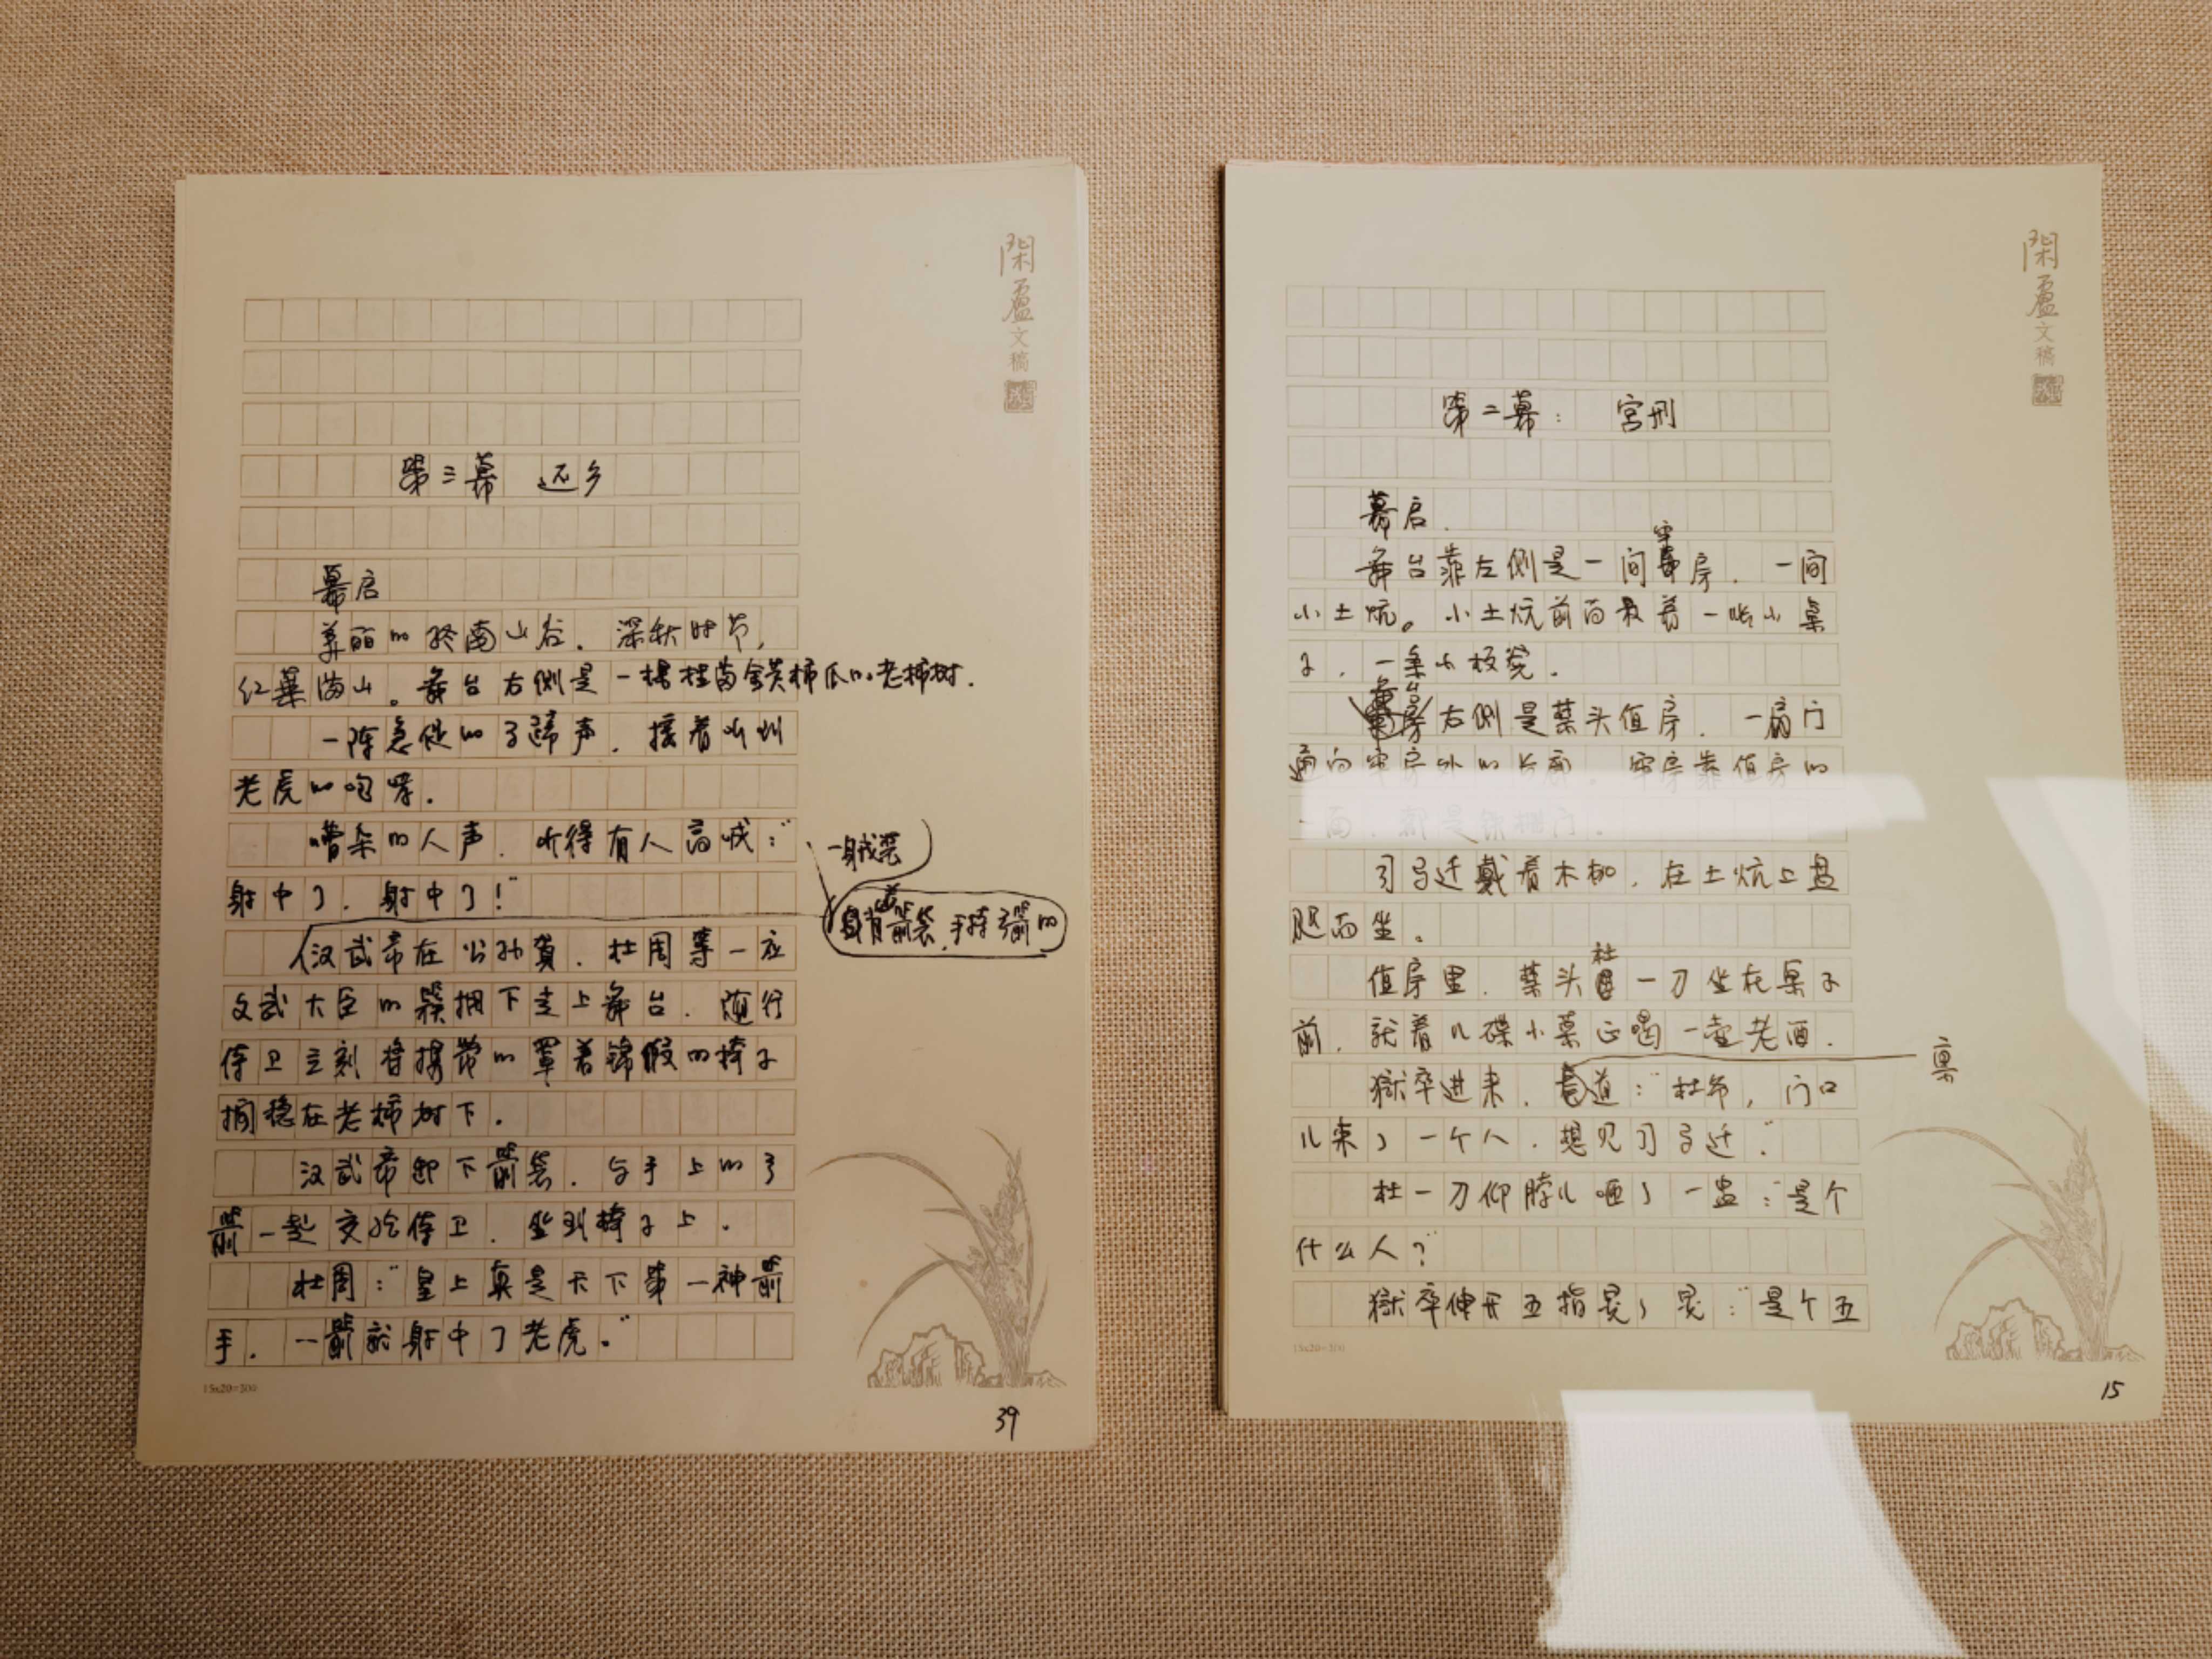 閑盈文稿
第三幕 还乡
幕启
美丽的终南山谷，深秋时节，
红叶满山。舞台右侧是一棵挂着金黄柿瓜的老柿树．
一阵急促的马蹄声，接着听到
老虎的咆哮．
嘈杂的人声．听得有人高喊："
射中了．射中了！"
一身戎装
身背箭袋，手持弓箭的
汉武帝在公孙贺．杜周等一应
文武大臣的簇拥下走上舞台．随行
侍卫立刻将携带的罩着锦缎的椅子
搁稳在老柿树下．
汉武帝卸下箭袋．与手上的弓
箭一起交给侍卫．坐到椅子上．
杜周："皇上真是天下第一神箭
手．一箭就射中了老虎。"
15x20=300
39
閑盈文稿
第二幕： 宫刑
幕启．
舞台靠左侧是一间牢房．一间
小土炕。小土炕前面放着一张小桌
子．一条小板凳．
舞台右侧是禁头值房．一扇门
通向牢房外的后面．牢房靠值房的
一面．都是铁栅门．
司马迁戴着木枷．在土炕上盘
腿而坐．
值房里．禁头杜一刀坐在桌子
前．就着几碟小菜正喝一壶老酒．
禀
狱卒进来．道："杜爷，门口
儿来了一个人．想见司马迁．"
杜一刀仰脖儿咂了一盅："是个
什么人？"
狱卒伸开五指晃了晃："是个五
15x20=300
15